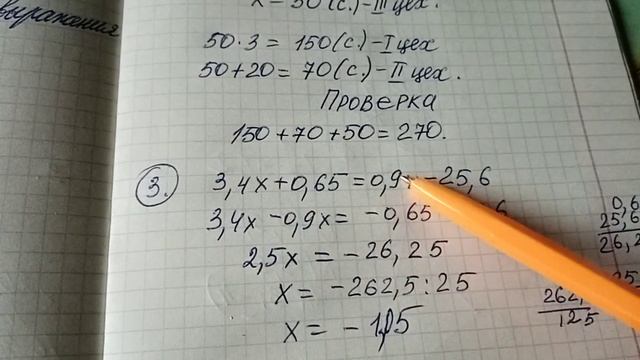 выражения
x = 50 (с.) - III цех.
50 · 3 = 150 (с.) - I цех
50 + 20 = 70 (с.) - II цех.
Проверка
150 + 70 + 50 = 270.
3.
3,4x + 0,65 = 0,9x - 25,6
3,4x - 0,9x = - 0,65
2,5x = - 26,25
x = - 262,5 : 25
x =
0,6
25,6
26,2
25
262,
125